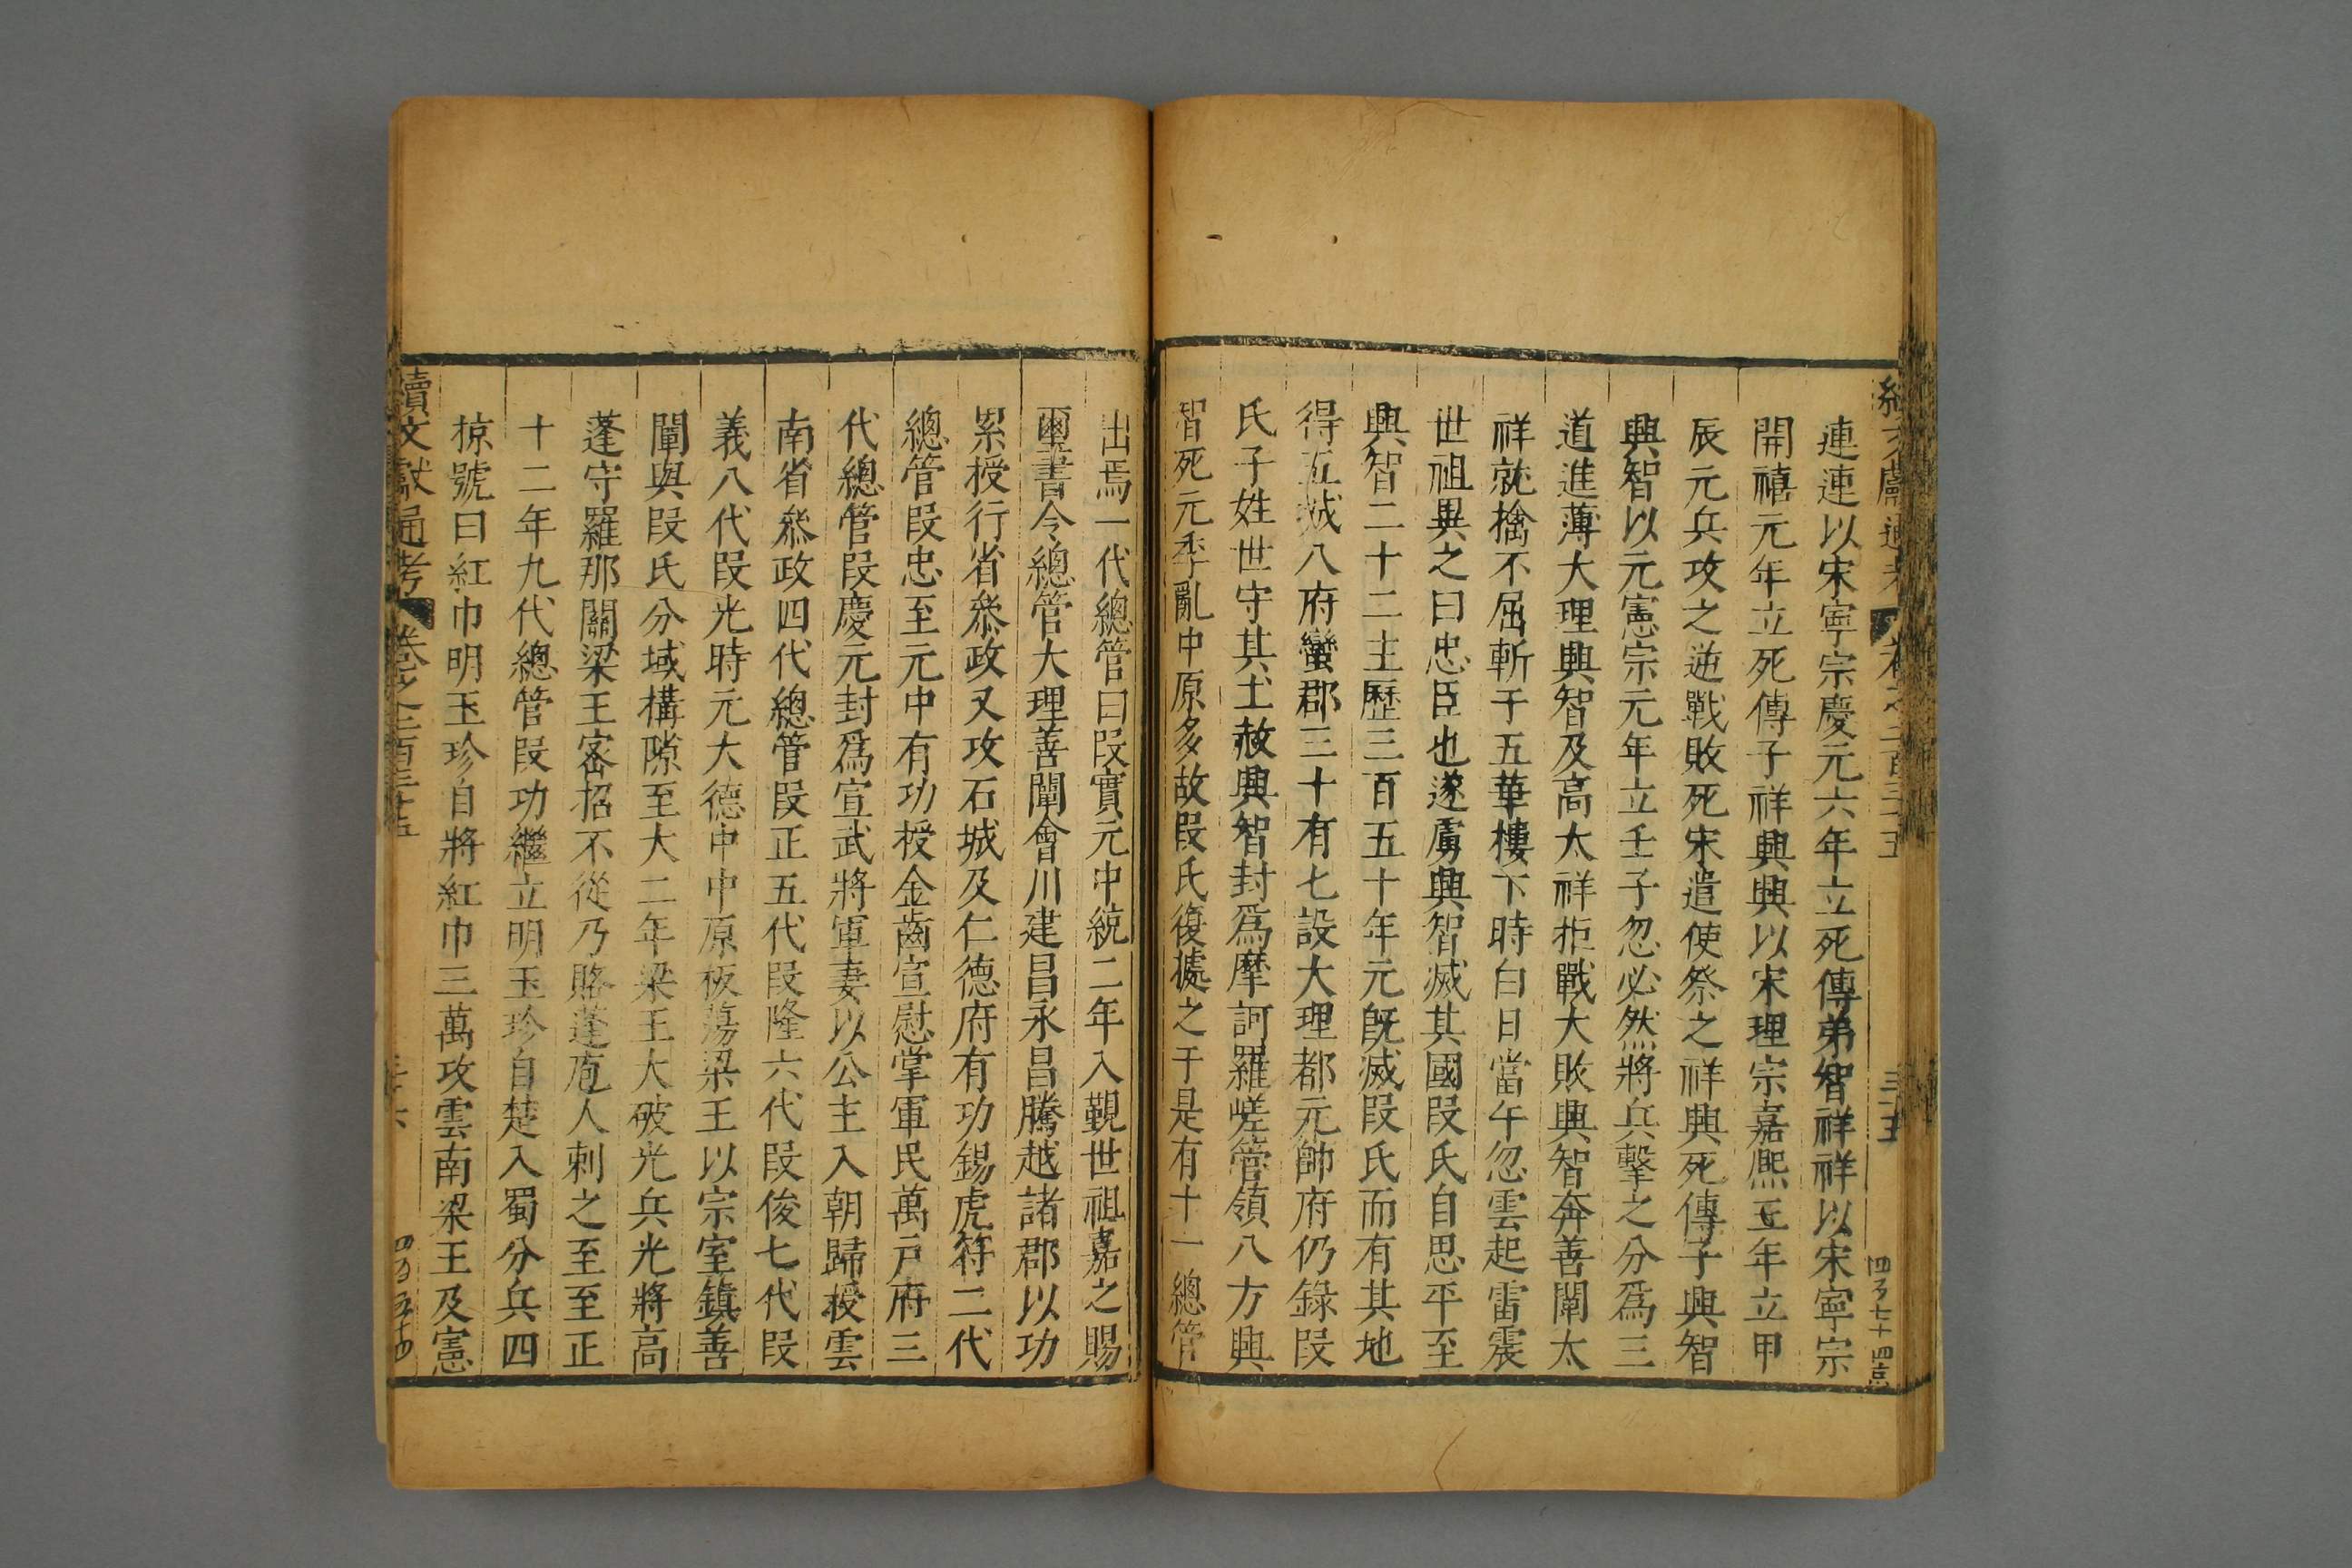 連連以宋寧宗慶元六年立死傳弟智祥祥以宋寧宗
開禧元年立死傳子祥興興以宋理宗嘉熙五年立甲
辰元兵攻之逆戰敗死宋遣使祭之祥興死傳子興智
興智以元憲宗元年立壬子忽必然將兵擊之分爲三
道進薄大理興智及高太祥拒戰大敗興智奔善闡太
祥就擒不屈斬于五華樓下時白日當午忽雲起雷震
世祖異之曰忠臣也遂虜興智滅其國段氏自思平至
興智二十二主歷三百五十年元旣滅段氏而有其地
得五城八府蠻郡三十有七設大理都元帥府仍錄段
氏子姓世守其土赦興智封爲摩訶羅嵯管領八方興
智死元季亂中原多故段氏復據之于是有十一總管
出焉一代總管曰段實元中統二年入覲世祖嘉之賜
璽書令總管大理善闡會川建昌永昌騰越諸郡以功
累授行省叅政又攻石城及仁德府有功錫虎符二代
總管段忠至元中有功授金齒宣慰掌軍民萬戶府三
代總管段慶元封爲宣武將軍妻以公主入朝歸授雲
南省叅政四代總管段正五代段隆六代段俊七代段
義八代段光時元大德中中原板蕩梁王以宗室鎮善
闡與段氏分域構隙至大二年梁王大破光兵光將高
蓬守羅那關梁王密招不從乃賂蓬庖人刺之至至正
十二年九代總管段功繼立明玉珍自楚入蜀分兵四
掠號曰紅巾明玉珍自將紅巾三萬攻雲南梁王及憲
續文獻通考 卷之二百三十五